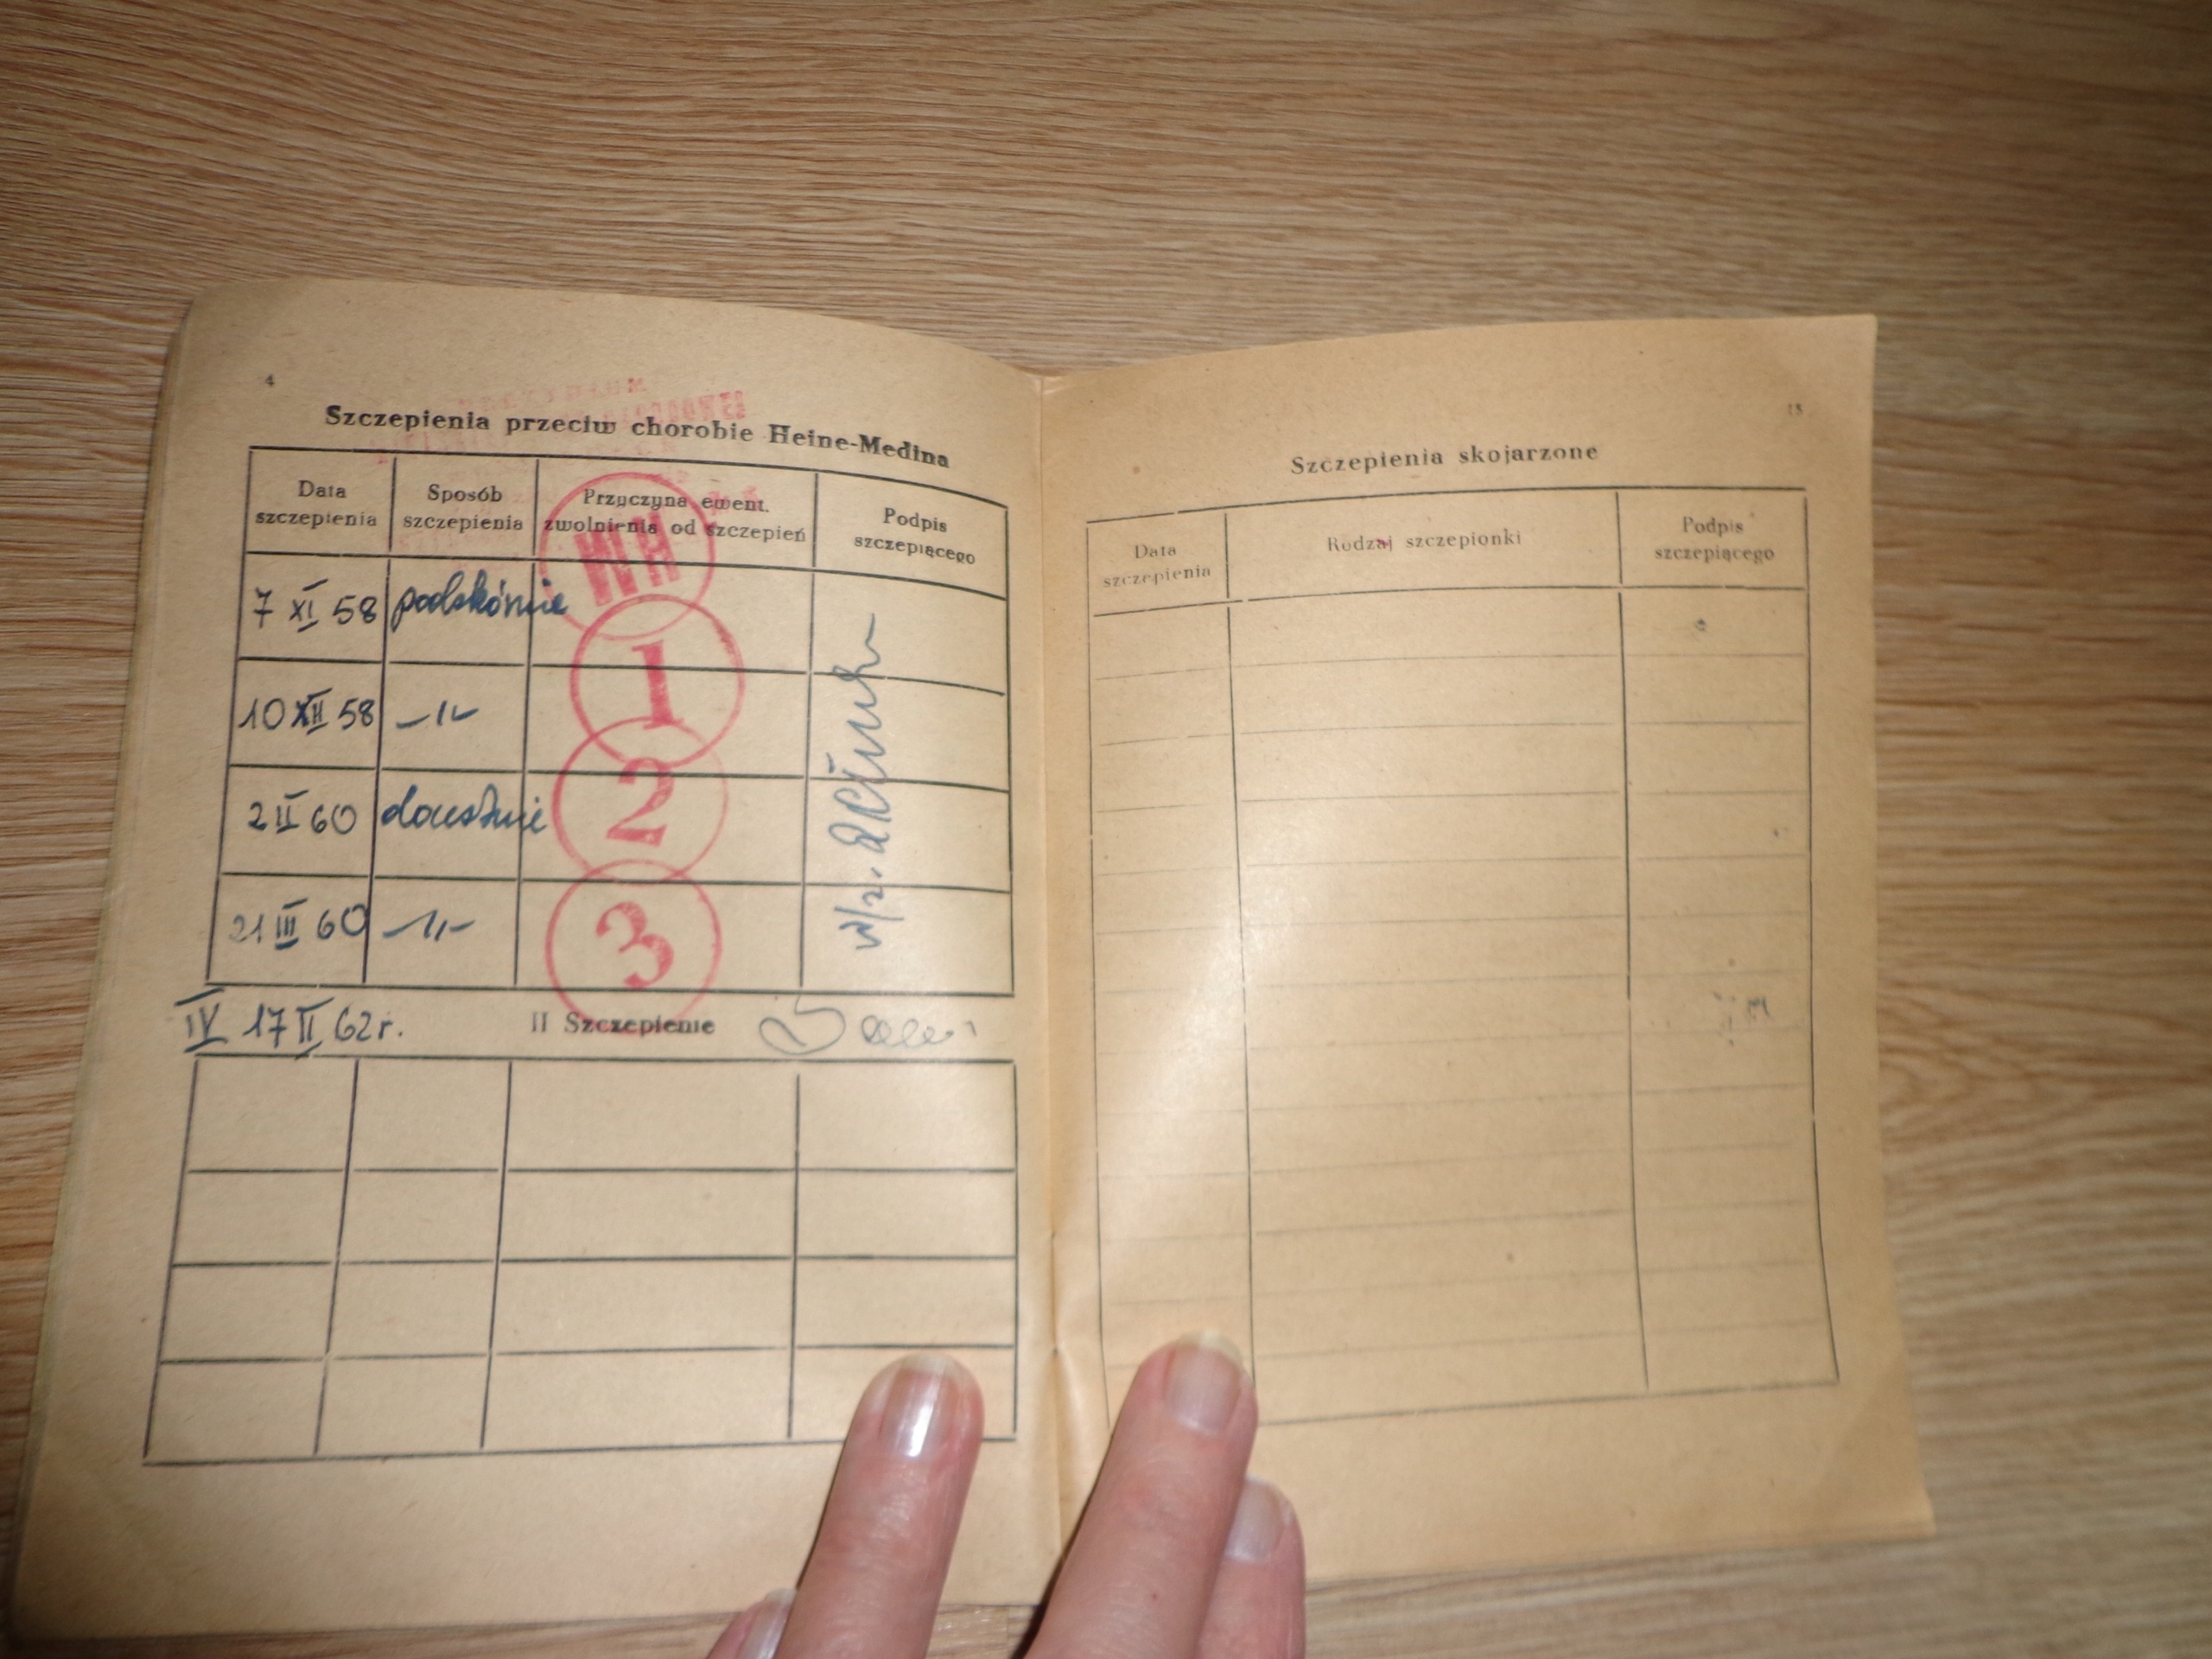 4
Szczepienia przeciw chorobie Heine-Medina
Data szczepienia
Sposób szczepienia
Przyczyna ewent. zwolnienia od szczepień
Podpis szczepiącego
HM
7 XI 58 podskórnie
1
10 XII 58 -11-
2
2 II 60 doustnie
3
21 III 60 -11-
IV 17 II 62 r.
II Szczepienie
Szczepienia skojarzone
Data szczepienia
Rodzaj szczepionki
Podpis szczepiącego